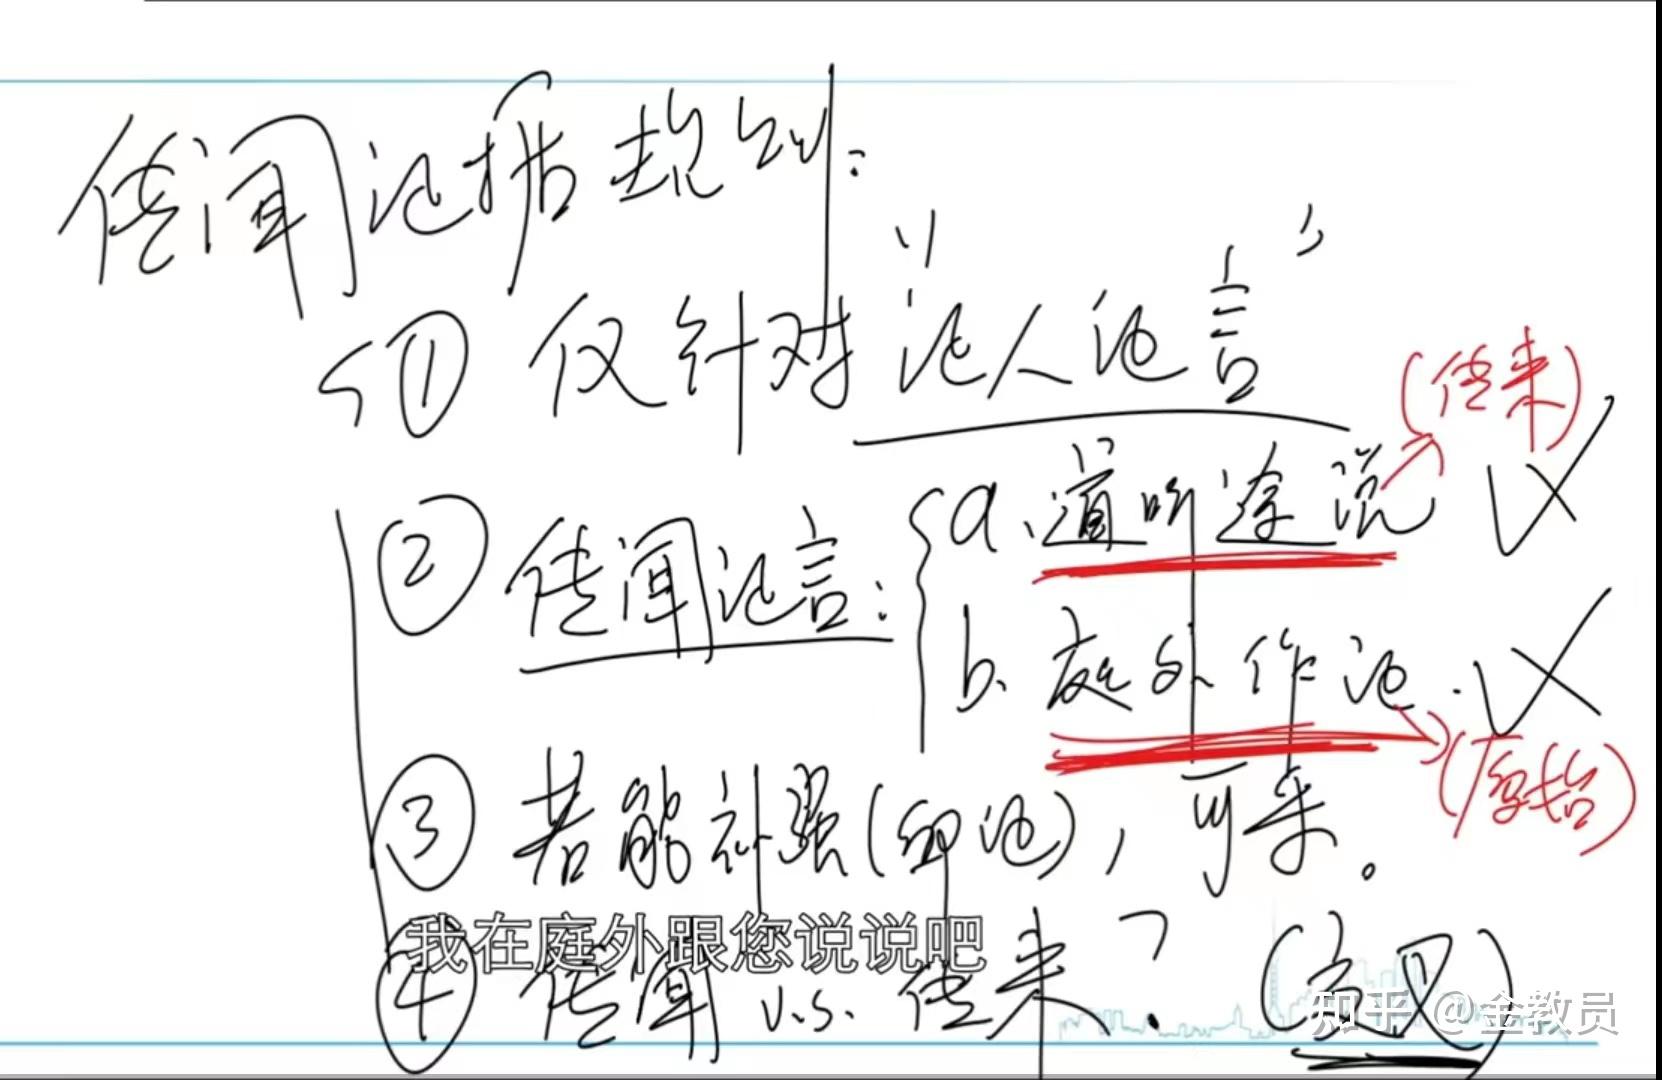 传闻证据规则:
① 仅针对"证人证言"
(传来)
② 传闻证言: a、道听途说
b、庭外作证.
(原始)
③ 若能补强(印证),可采。
我在庭外跟您说说吧
④ 传闻 v.s. 传来? (交叉)
知乎 @金教员